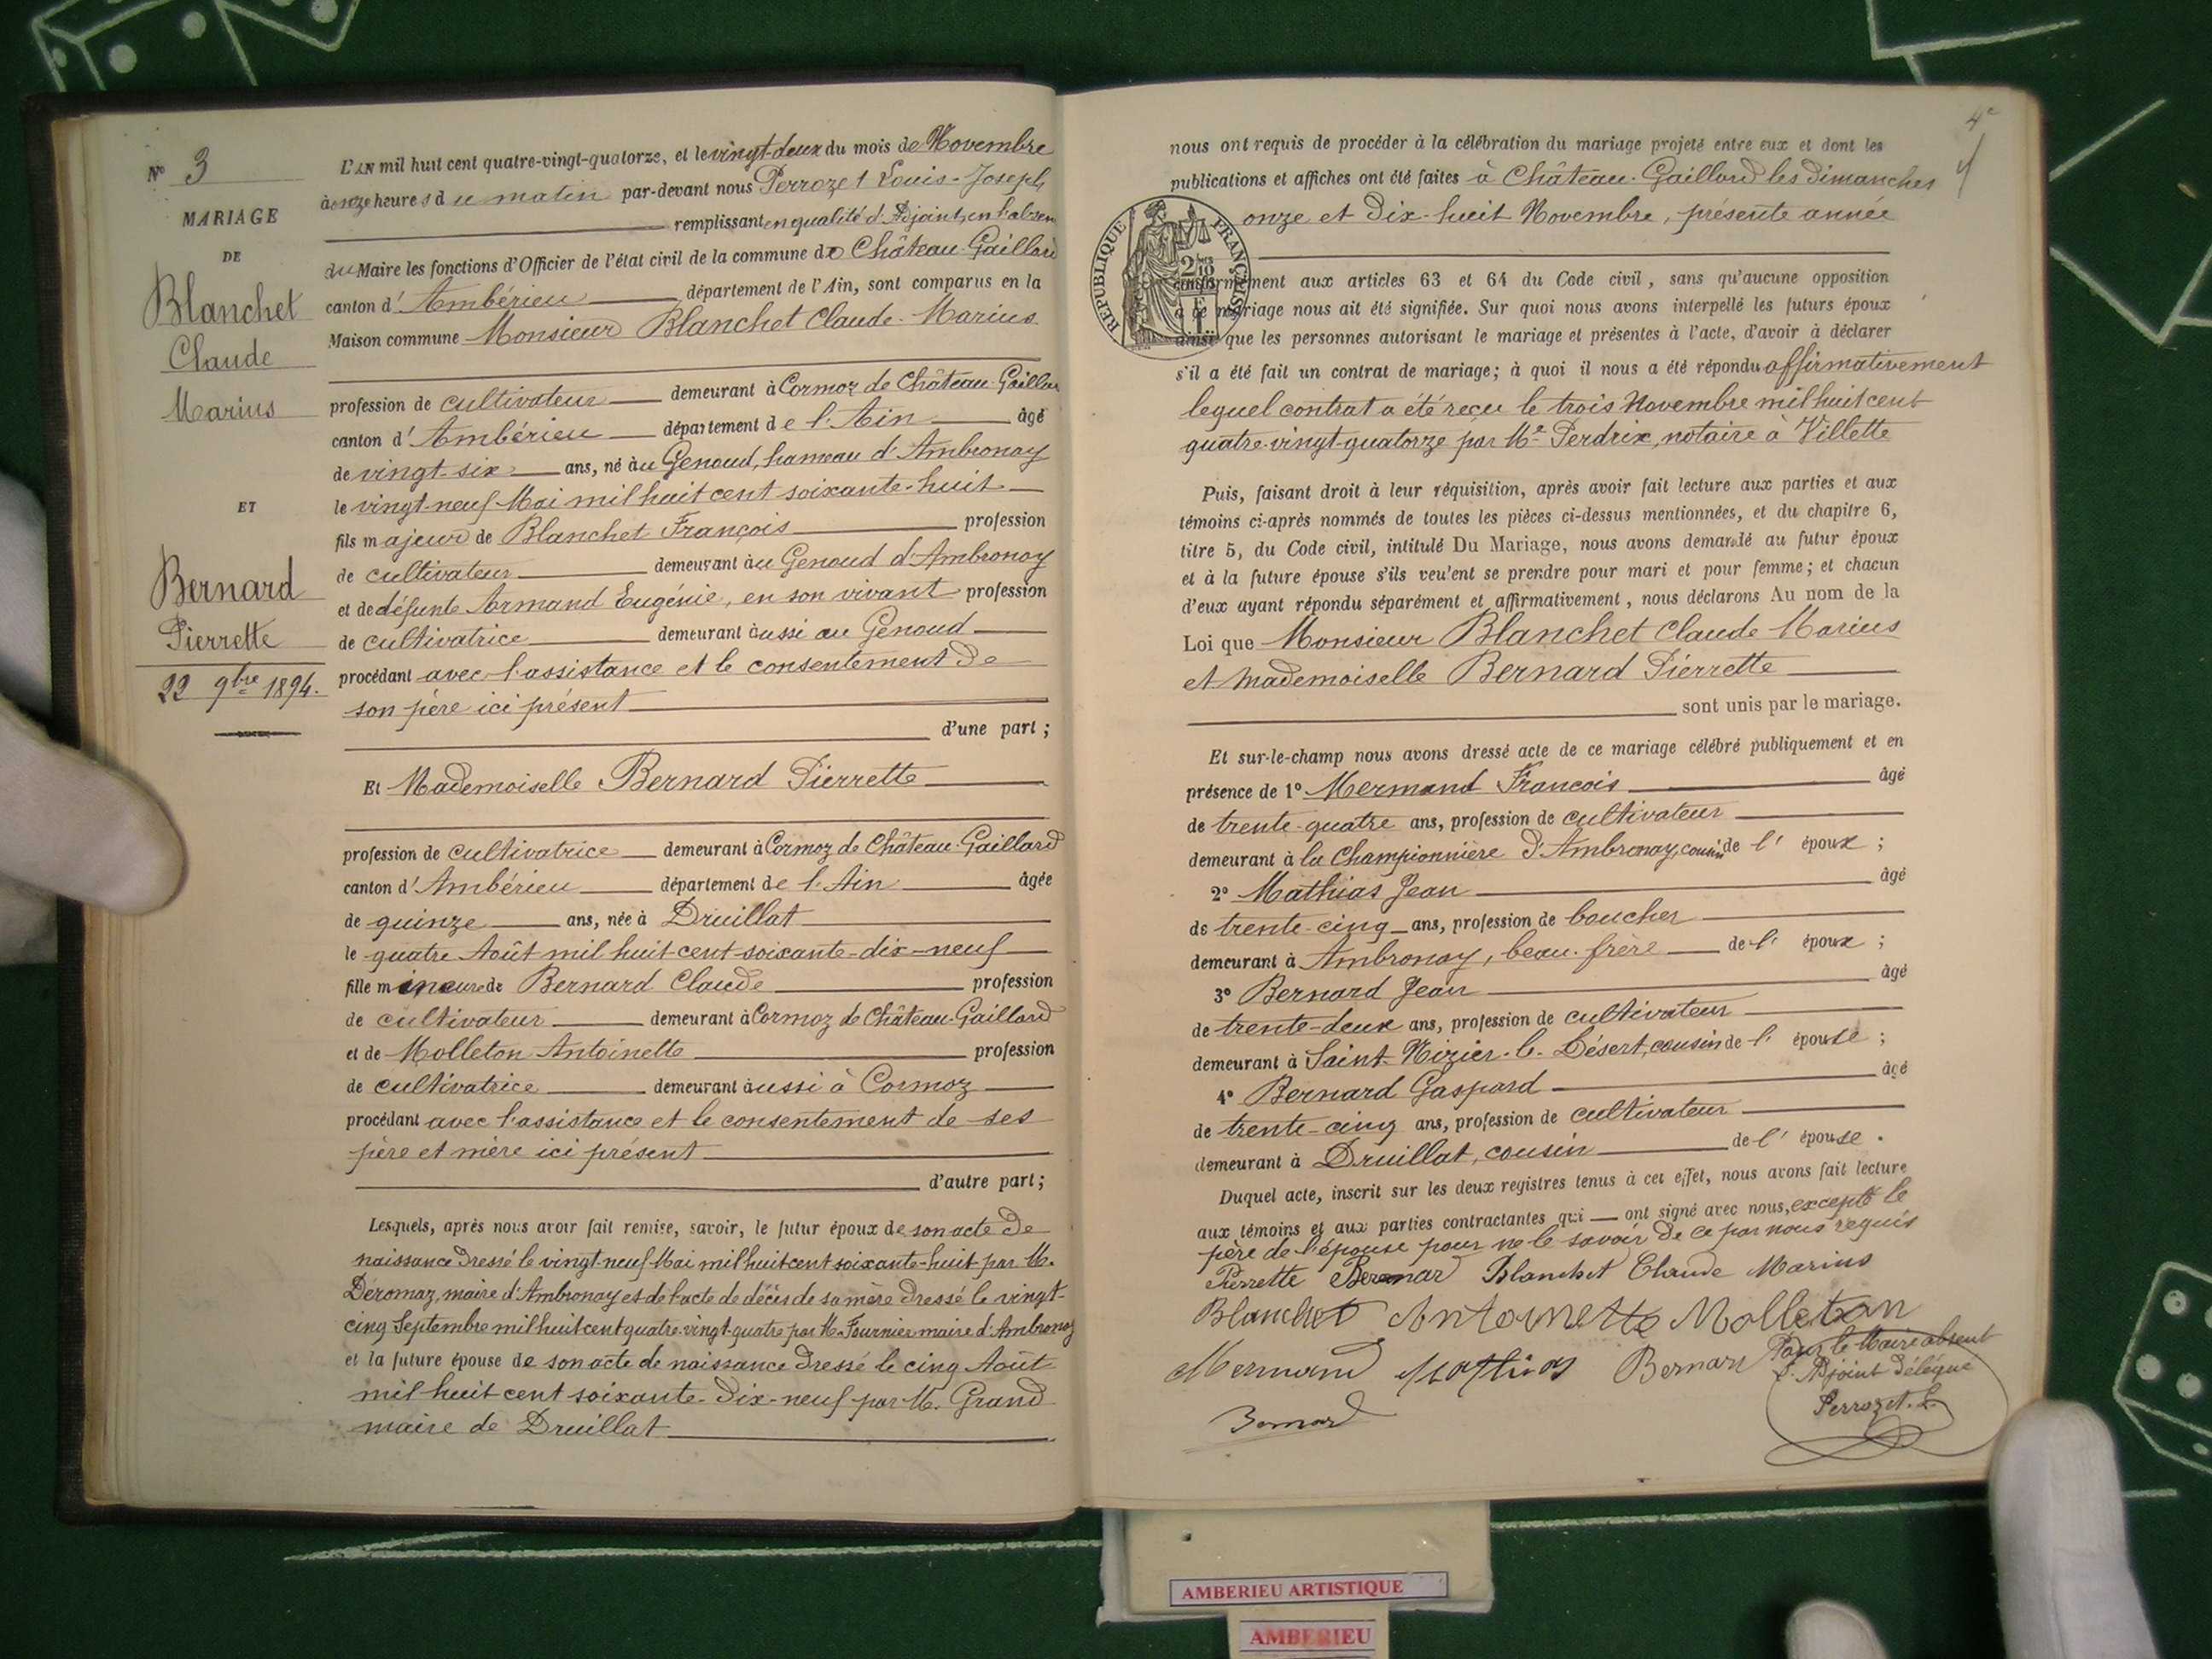 N° 3
MARIAGE
DE
Blanchet
Claude
Marius
ET
Bernard
Pierrette
22 9bre 1894.
L'AN mil huit cent quatre-vingt-quatorze, et le vingt-deux du mois de Novembre
à onze heures du matin par-devant nous Perrozet Louis-Joseph
remplissant en qualité d'Adjoint, en l'absen
du Maire les fonctions d'Officier de l'état civil de la commune de Château-Gaillard
canton d'Ambérieu département de l'Ain, sont comparus en la
Maison commune Monsieur Blanchet Claude-Marius
profession de cultivateur demeurant à Cormoz de Château-Gaillar
canton d'Ambérieu département de l'Ain âgé
de vingt-six ans, né au Genoud, hameau d'Ambronay
le vingt-neuf Mai mil huit cent soixante-huit
fils majeur de Blanchet François profession
de cultivateur demeurant au Genoud d'Ambronay
et de défunte Armand Eugénie, en son vivant profession
de cultivatrice demeurant aussi au Genoud
procédant avec l'assistance et le consentement de
son père ici présent
d'une part;
Et Mademoiselle Bernard Pierrette
profession de cultivatrice demeurant à Cormoz de Château-Gaillard
canton d'Ambérieu département de l'Ain âgée
de quinze ans, née à Druillat
le quatre Août mil huit cent soixante-dix-neuf
fille mineure de Bernard Claude profession
de cultivateur demeurant à Cormoz de Château-Gaillard
et de Molleton Antoinette profession
de cultivatrice demeurant aussi à Cormoz
procédant avec l'assistance et le consentement de ses
père et mère ici présent
d'autre part;
Lesquels, après nous avoir fait remise, savoir, le futur époux de son acte de
naissance dressé le vingt-neuf Mai mil huit cent soixante-huit par M.
Déromaz, maire d'Ambronay et de l'acte de décès de sa mère dressé le vingt-
cinq Septembre mil huit cent quatre-vingt-quatre par M. Fournier maire d'Ambronay
et la future épouse de son acte de naissance dressé le cinq Août
mil huit cent soixante-dix-neuf par M. Grand
maire de Druillat
4e
nous ont requis de procéder à la célébration du mariage projeté entre eux et dont les
publications et affiches ont été faites à Château-Gaillard les dimanches
onze et dix-huit Novembre, présente année
RÉPUBLIQUE FRANÇAISE
conformément aux articles 63 et 64 du Code civil, sans qu'aucune opposition
à ce mariage nous ait été signifiée. Sur quoi nous avons interpellé les futurs époux
ainsi que les personnes autorisant le mariage et présentes à l'acte, d'avoir à déclarer
s'il a été fait un contrat de mariage; à quoi il nous a été répondu affirmativement
lequel contrat a été reçu le trois Novembre mil huit cent
quatre-vingt-quatorze par Me Perdrix, notaire à Villette
Puis, faisant droit à leur réquisition, après avoir fait lecture aux parties et aux
témoins ci-après nommés de toutes les pièces ci-dessus mentionnées, et du chapitre 6,
titre 5, du Code civil, intitulé Du Mariage, nous avons demandé au futur époux
et à la future épouse s'ils veu'ent se prendre pour mari et pour femme; et chacun
d'eux ayant répondu séparément et affirmativement, nous déclarons Au nom de la
Loi que Monsieur Blanchet Claude-Marius
et Mademoiselle Bernard Pierrette
sont unis par le mariage.
Et sur-le-champ nous avons dressé acte de ce mariage célébré publiquement et en
présence de 1° Mermand François âgé
de trente-quatre ans, profession de cultivateur
demeurant à la Championnière d'Ambronay, cousin de l'époux;
2° Mathias Jean âgé
de trente-cinq ans, profession de boucher
demeurant à Ambronay, beau-frère de l'époux;
3° Bernard Jean âgé
de trente-deux ans, profession de cultivateur
demeurant à Saint-Nizier-le-Désert, cousin de l'épouse;
4° Bernard Gaspard âgé
de trente-cinq ans, profession de cultivateur
demeurant à Druillat, cousin de l'épouse.
Duquel acte, inscrit sur les deux registres tenus à cet effet, nous avons fait lecture
aux témoins et aux parties contractantes qui ont signé avec nous, excepté le
père de l'épouse pour ne le savoir de ce par nous requis
Pierrette Bernar Blanchet Claude Marius
Blanchet Antoinette Molleton
Mermand Mathias Bernard Pour le Maire absent
L'Adjoint délégué
Perrozet. L.
Bernard
AMBERIEU ARTISTIQUE
AMBERIEU